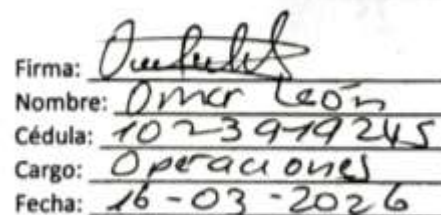 Firma:
Nombre: Omar León
Cédula: 1023919245
Cargo: Operaciones
Fecha: 16-03-2026